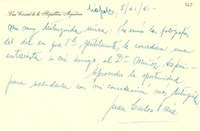 Vice Consul de la República Argentina
5/21/61-
mi muy distinguida amiga: Le envío las fotografías
del día en que Vd., gentilmente, le concediera una
entrevista a mi amigo, el Dr. Muñoz
Aprovecho la oportunidad
para saludarla con mi consideración más distinguida
Juan Carlos